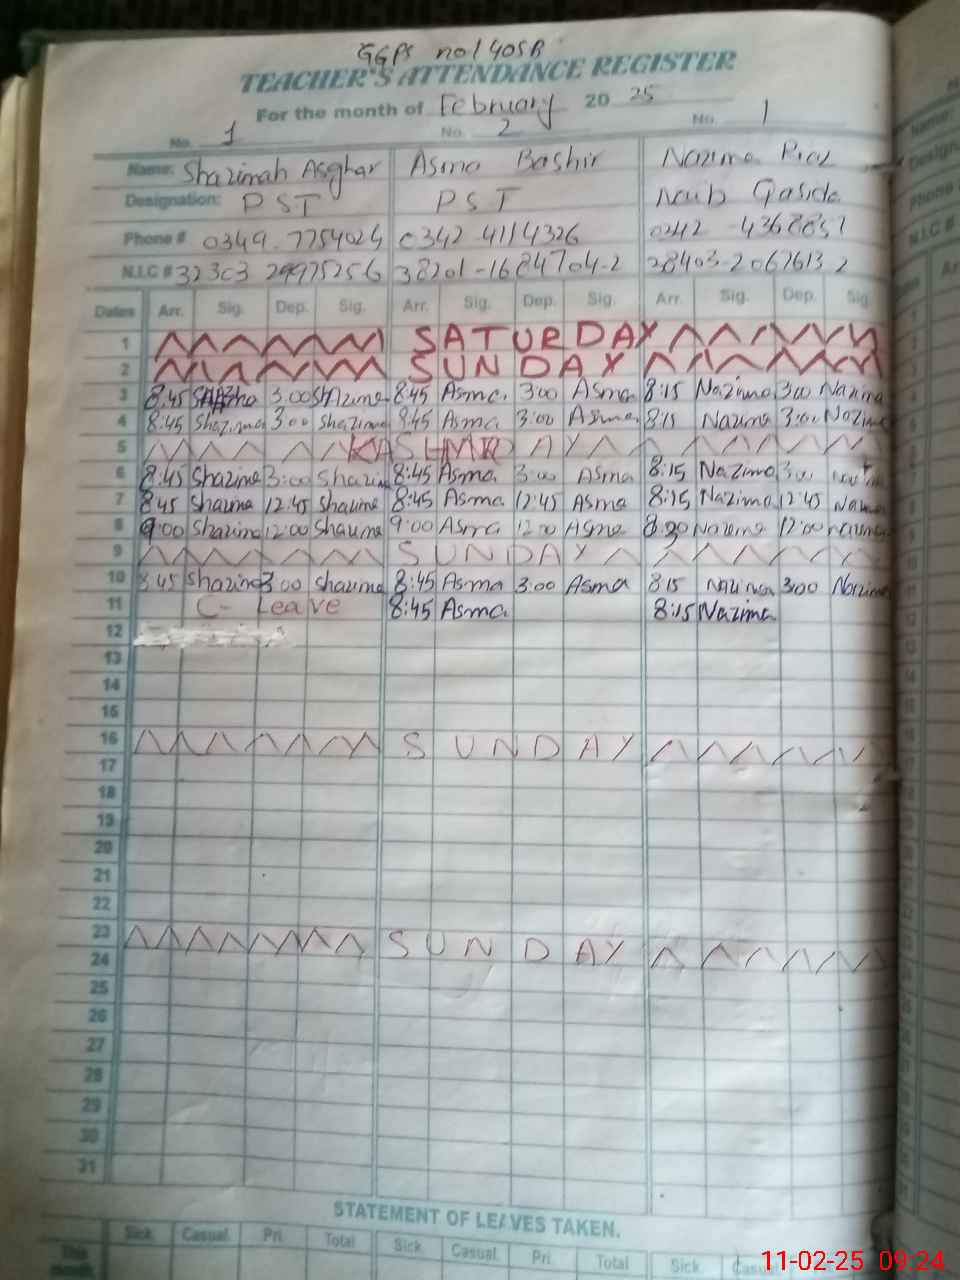 GGPS no 140SB
TEACHER'S ATTENDANCE REGISTER
For the month of February 20 25
No. 1 No. 2 No. 1
Name: Shazinah Asghar Asma Bashir Nazima Riaz
Designation: PST PST Naib Qasid
Phone # 0349.7754024 0342 4114326 0242 -4368851
N.I.C # 32303 29975256 38201-1684704-2 28403-2067613 2
Dates Arr. Sig. Dep. Sig. Arr. Sig. Dep. Sig. Arr. Sig. Dep. Sig.
1 SATURDAY
2 SUNDAY
3 8:45 3:00 Shazima 8:45 Asma 3:00 Asma 8:15 Nazima 3:00 Nazima
4 8:45 Shazima 3:00 Shazima 8:45 Asma 3:00 Asma 8:15 Nazima 3:00 Nazima
5 KASHMIR DAY
6 8:45 Shazima 3:00 Shazima 8:45 Asma 3:00 Asma 8:15 Nazima 3:00
7 8:45 Shazima 12:45 Shazima 8:45 Asma 12:45 Asma 8:15 Nazima 12:45 Nazima
8 9:00 Shazima 12:00 Shazima 9:00 Asma 12:00 Asma 8:30 Nazima 12:00 Nazima
9 SUNDAY
10 8:45 Shazima 3:00 Shazima 8:45 Asma 3:00 Asma 8:15 Nazima 3:00 Nazima
11 C- Leave 8:45 Asma 8:15 Nazima
12
13
14
15
16 SUNDAY
17
18
19
20
21
22
23 SUNDAY
24
25
26
27
28
29
30
31
STATEMENT OF LEAVES TAKEN.
Sick Casual Pri. Total Sick Casual Pri. Total Sick Casual
This month
11-02-25 09:24